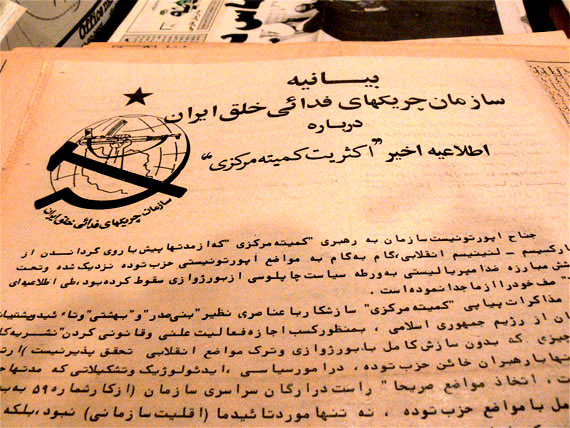 بیــــانیه
سازمان چریکهای فدائی خلق ایران
درباره
اطلاعیه اخیر "اکثریت کمیته مرکزی"
سازمان چریکهای فدائی خلق ایران
جناح اپورتونیست سازمان به رهبری "کمیته مرکزی" که از مدتها پیش با روی گرداندن از
لنینیسم انقلابی، گام به گام به مواضع اپورتونیستی حزب توده نزدیک شده وتحت
مبارزه ضد امپریالیستی به ورطه سیاست چاپلوسی از بورژوازی سقوط کرده بود، طی اطلاعیه‌ای
صف خود را از ما جدا نموده است.
مذاکرات پیاپی "کمیته مرکزی" سازشکار با عناصری نظیر "بنی صدر" و "بهشتی" وتاء ئید وپشتیبان
از رژیم جمهوری اسلامی، بمنظور کسب اجازه فعالیت علنی وقانونی کردن "نشریه کا
چیزی که بدون سازش کامل با بورژوازی وترک مواضع انقلابی تحقق پذیر نیست)
با رهبران خائن حزب توده، در امور سیاسی، ایدئولوژیک وتشکیلاتی که مدتها
اتخاذ مواضع صریحا" راست در ارگان سراسری سازمان (از کار شماره ۵۹ به
با مواضع حزب توده، نه تنها مورد تائید ما (اقلیت سازمانی) نبود، بلکه